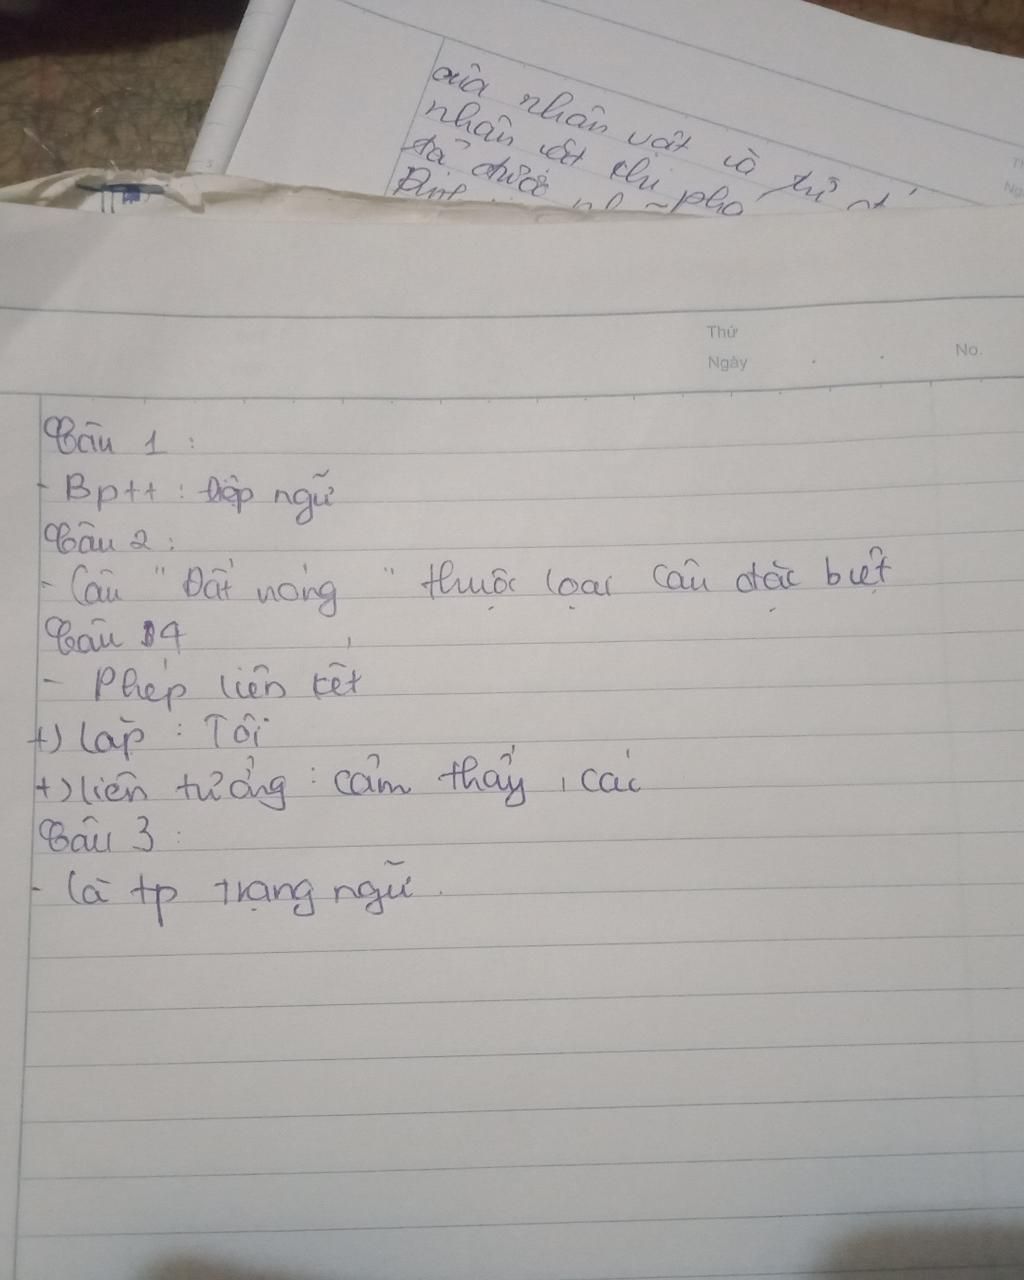 của nhân vật và từ
nhân vật thì pho
tả được
Thứ
Ngày
No.
Câu 1 :
- Bptt : Điệp ngữ
Câu 2 :
- Câu " Đất nóng " thuộc loại câu đặc biệt
Câu 4
- Phép liên kết
+) lặp : Tôi
+) liên tưởng : cảm thấy , các
Câu 3 :
- là tp trạng ngữ .